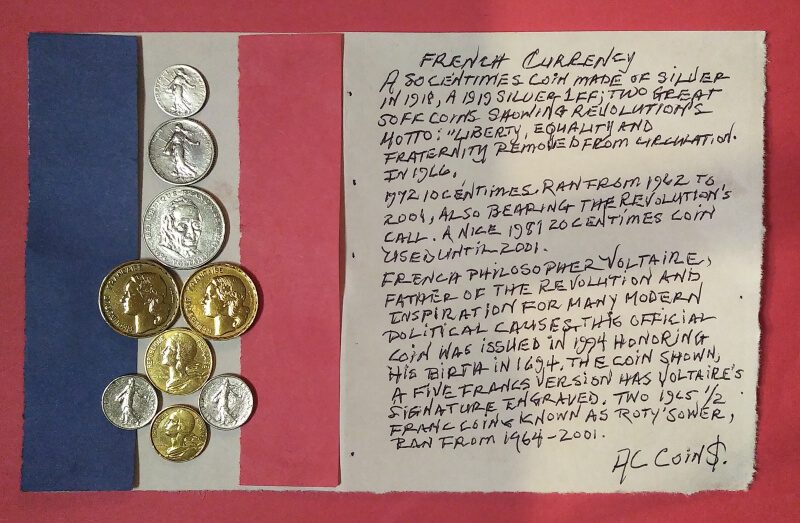 FRENCH CURRENCY
A 50 CENTIMES COIN MADE OF SILVER
IN 1918, A 1919 SILVER 1FF; TWO GREAT
50FF COINS SHOWING REVOLUTION'S
MOTTO: "LIBERTY, EQUALITY AND
FRATERNITY REMOVED FROM CIRCULATION.
IN 1966.
1972 10 CENTIMES RAN FROM 1962 TO
2001, ALSO BEARING THE REVOLUTION'S
CALL. A NICE 1987 20 CENTIMES COIN
USED UNTIL 2001.
FRENCH PHILOSOPHER VOLTAIRE,
FATHER OF THE REVOLUTION AND
INSPIRATION FOR MANY MODERN
POLITICAL CAUSES, THIS OFFICIAL
COIN WAS ISSUED IN 1994 HONORING
HIS BIRTH IN 1694. THE COIN SHOWN,
A FIVE FRANCS VERSION HAS VOLTAIRE'S
SIGNATURE ENGRAVED. TWO 1965 1/2
FRANC COINS KNOWN AS ROTY'SOWER,
RAN FROM 1964-2001.
AC COIN$.